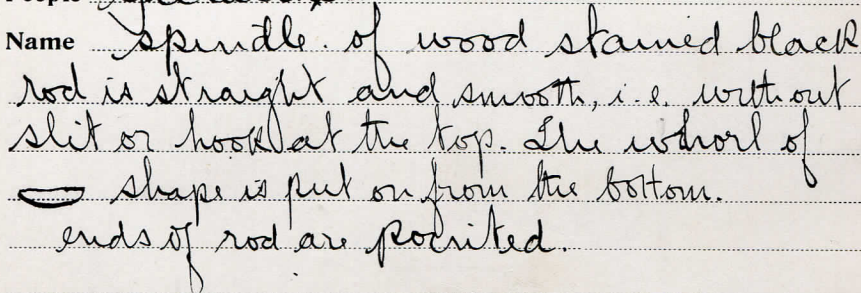 Name Spindle. of wood stained black
rod is straight and smooth, i.e. without
slit or hook at the top. The whorl of
shape is put on from the bottom.
ends of rod are pointed.